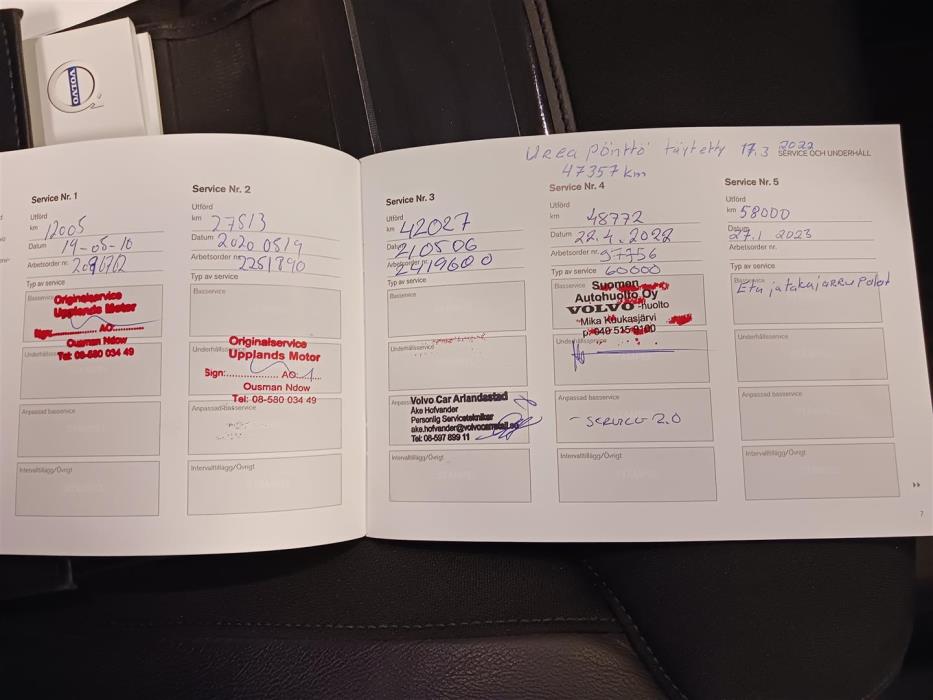 VOLVO
Urea pönttö täytetty 17.3 2022
47357 km
SERVICE OCH UNDERHÅLL
Service Nr. 1
Utförd
km 12005
Datum 19-05-10
Arbetsorder nr.
Typ av service
Basservice
Originalservice
Upplands Motor
Sign: AO:
Ousman Ndow
Tel: 08-580 034 49
Underhållsservice
Anpassad basservice
Intervalltillägg/Övrigt
Service Nr. 2
Utförd
km 27513
Datum 20200519
Arbetsorder nr. 2251790
Typ av service
Basservice
Underhållsservice
Originalservice
Upplands Motor
Sign: AO:
Ousman Ndow
Tel: 08-580 034 49
Anpassad basservice
Intervalltillägg/Övrigt
Service Nr. 3
Utförd
km 42027
Datum 210506
Arbetsorder nr. 2419600
Typ av service
Basservice
Underhållsservice
Anpassad basservice
Volvo Car Arlandastad
Åke Hofvander
Personlig Servicetekniker
Tel: 08-597 899 11
Intervalltillägg/Övrigt
Service Nr. 4
Utförd
km 48772
Datum 22.4.2022
Arbetsorder nr. 97756
Typ av service 60000
Basservice
Suomen
Autohuolto Oy
VOLVO-huolto
Mika Koukasjärvi
p. 040 515 9100
Underhållsservice
Anpassad basservice
- SERVICE 2.0
Intervalltillägg/Övrigt
Service Nr. 5
Utförd
km 58000
Datum 27.1 2023
Arbetsorder nr.
Typ av service
Basservice
Etu ja takajarru palat
Underhållsservice
Anpassad basservice
Intervalltillägg/Övrigt
7